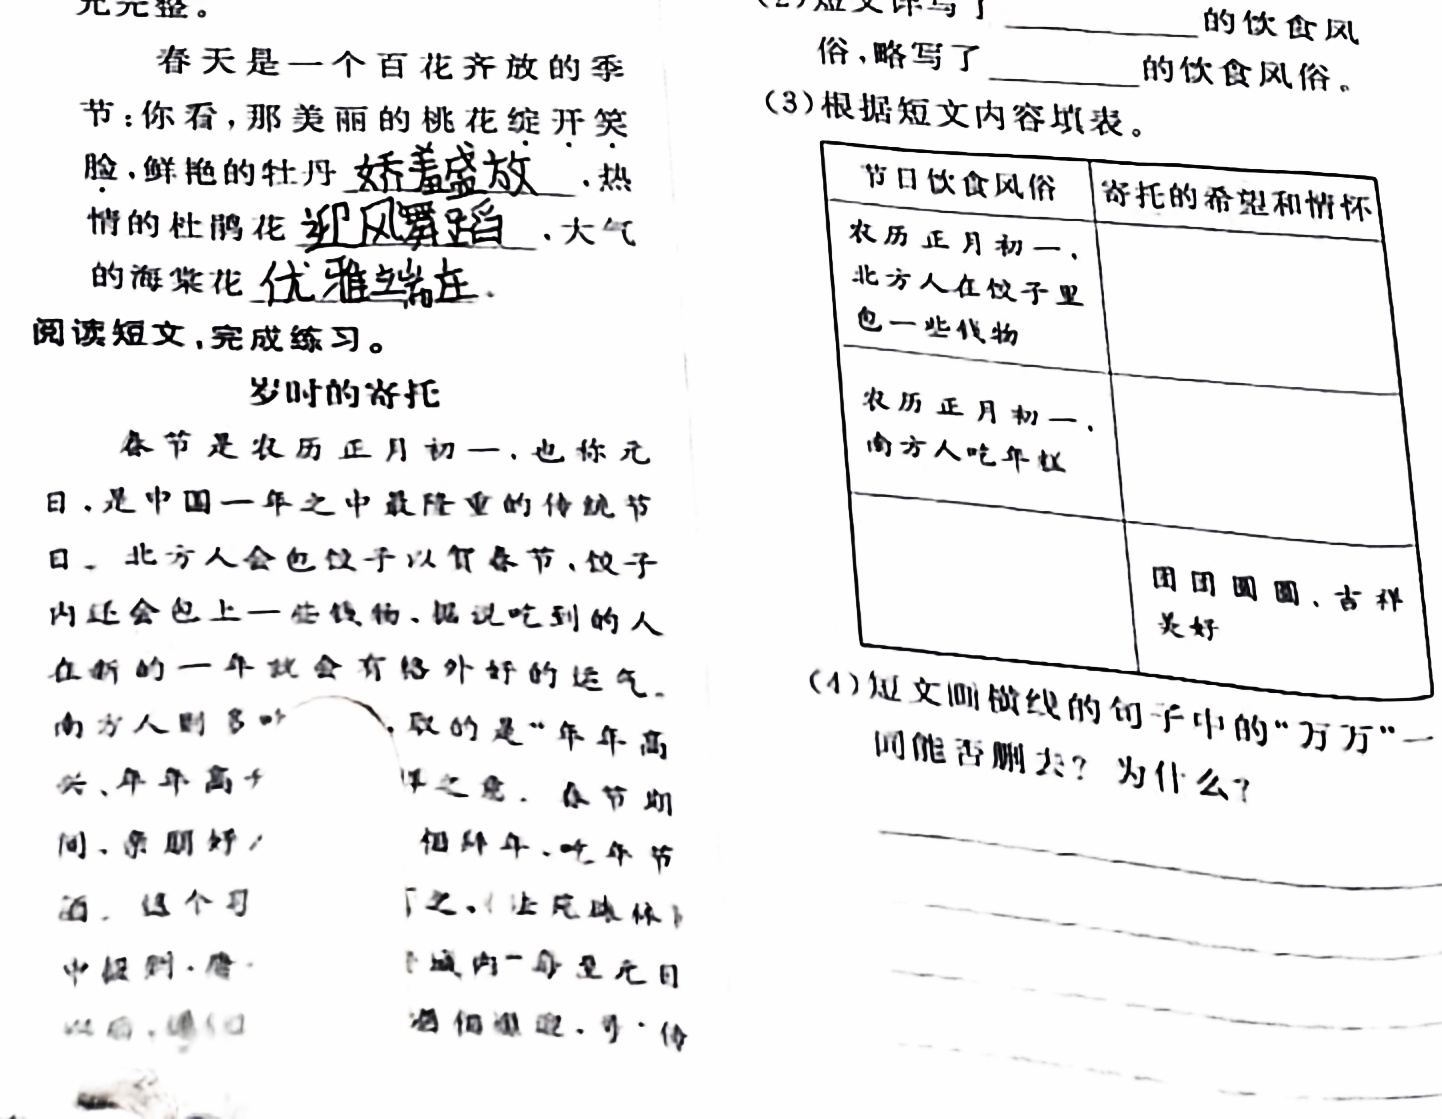 充完整。
春天是一个百花齐放的季
节:你看,那美丽的桃花绽开笑
脸,鲜艳的牡丹娇羞盛放,热
情的杜鹃花迎风舞蹈,大气
的海棠花优雅端庄。
阅读短文,完成练习。
岁时的寄托
春节是农历正月初一,也称元
日,是中国一年之中最隆重的传统节
日。北方人会包饺子以贺春节,饺子
内还会包上一些钱物,据说吃到的人
在新的一年就会有格外好的运气。
南方人则多吃 取的是“年年高
兴、年年高 之意。春节期
间,亲朋好 相拜年、吃年节
酒。这个习 之,
中提到,唐 城内“每至元日
以后, 酒相 迎,号‘传
(2)短文详写了 的饮食风
俗,略写了 的饮食风俗。
(3)根据短文内容填表。
节日饮食风俗 寄托的希望和情怀
农历正月初一,
北方人在饺子里
包一些钱物
农历正月初一,
南方人吃年糕
团团圆圆、吉祥
美好
(4)短文画横线的句子中的“万万”一
词能否删去?为什么?